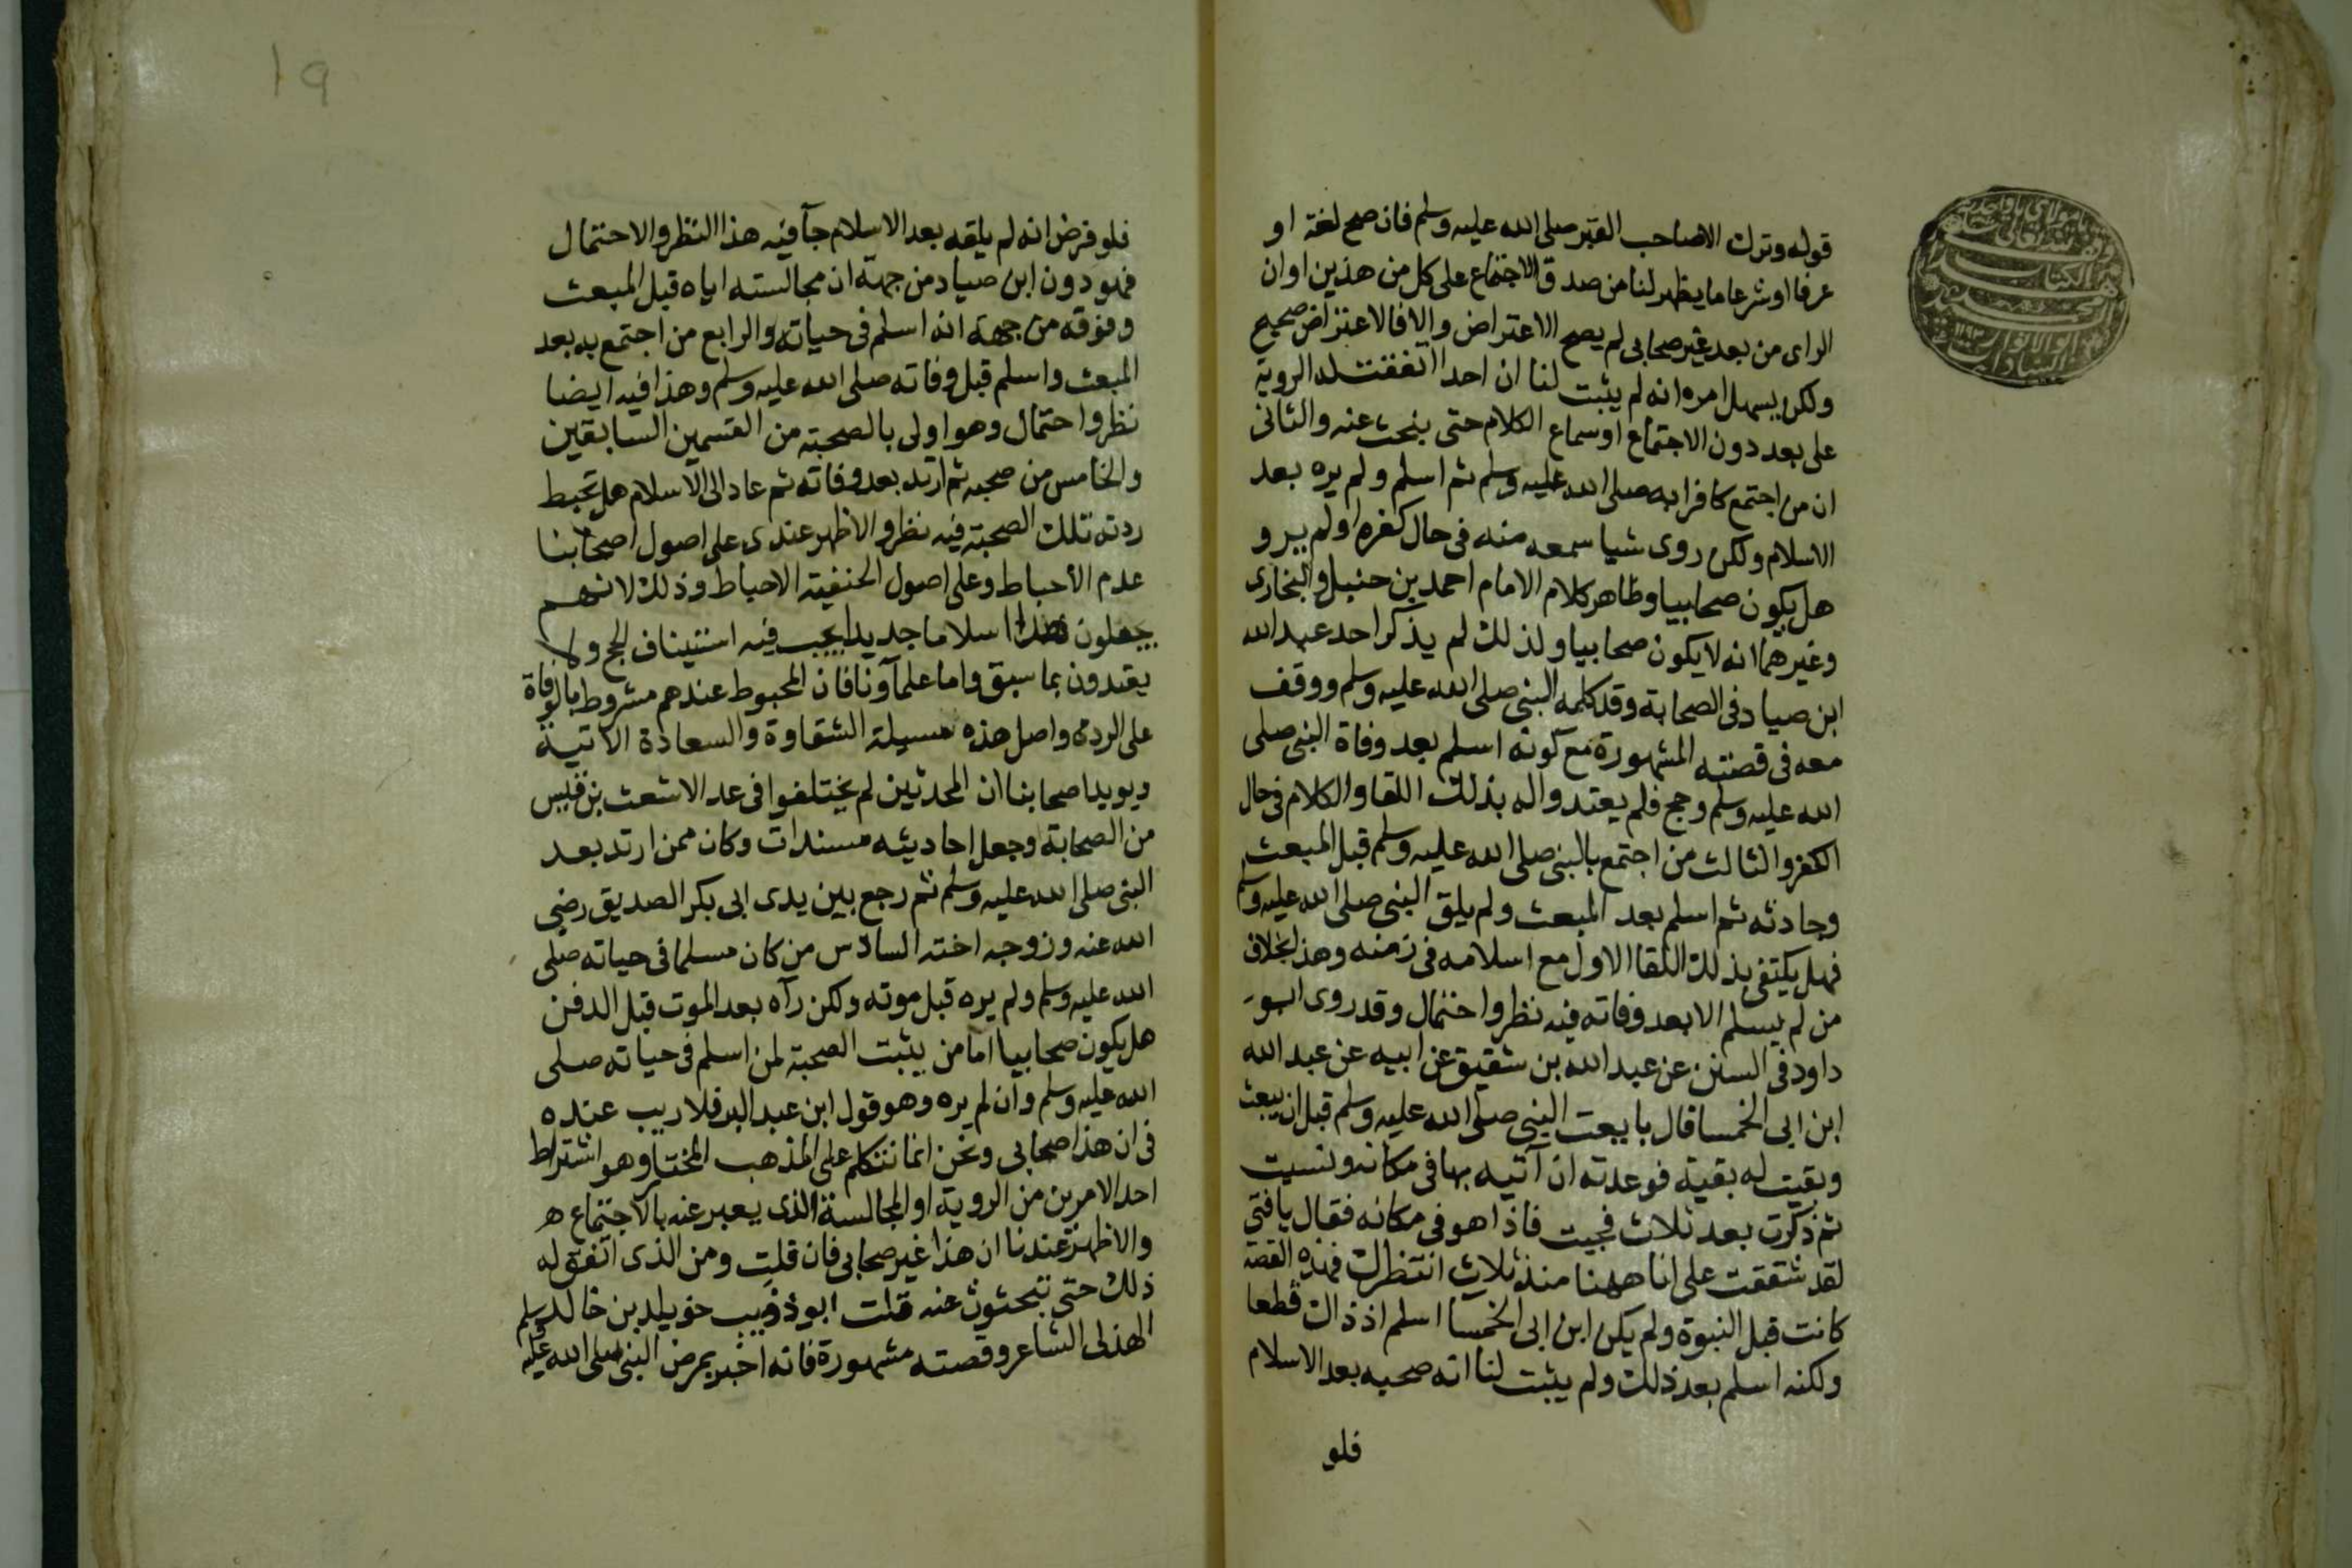 قوله وترك الاصاحب القبر صلى الله عليه وسلم فان صح لغة او
عرفا او شرعا ما يظهر لنا من صدق الاجتماع على كل من هذين او ان
الراى من بعد غير صحابى لم يصح الاعتراض والا فالاعتراض صحيح
ولكن يسهل امره انه لم يثبت لنا ان احدا اتفقت له الروية
على بعد دون الاجتماع او سماع الكلام حتى بنحث عنه والثانى
ان من اجتمع كافرا به صلى الله عليه وسلم ثم اسلم ولم يره بعد
الاسلام ولكن روى شيا سمعه منه فى حال كفره او لم يرو
هل يكون صحابيا وظاهر كلام الامام احمد بن حنبل والبخارى
وغيرهما انه لا يكون صحابيا ولذلك لم يذكر احد عبد الله
ابن صياد فى الصحابة وقد كلمه النبى صلى الله عليه وسلم ووقف
معه فى قصته المشهورة مع كونه اسلم بعد وفاة النبى صلى
الله عليه وسلم وحج فلم يعتدوا له بذلك اللقا والكلام فى حال
الكفر والثالث من اجتمع بالنبى صلى الله عليه وسلم قبل المبعث
وحادثه ثم اسلم بعد المبعث ولم يلق النبى صلى الله عليه وسلم
فهل يكتفى بذلك اللقا الاول مع اسلامه فى زمنه وهذا بخلاف
من لم يسلم الا بعد وفاته فيه نظر واحتمال وقد روى ابو
داود فى السنن عن عبد الله بن شقيق عن ابيه عن عبد الله
ابن ابى الخمسا قال بايعت النبى صلى الله عليه وسلم قبل ان يبعث
وبقيت له بقية فوعدته ان آتيه بها فى مكانه ونسيت
ثم ذكرت بعد ثلاث فجيت فاذا هو فى مكانه فقال يا فتى
لقد شققت على انا ههنا منذ ثلاث انتظرك فهذه القصة
كانت قبل النبوة ولم يكن ابن ابى الخمسا اسلم اذ ذاك قطعا
ولكنه اسلم بعد ذلك ولم يثبت لنا انه صحبه بعد الاسلام
فلو
١٩
فلو فرض انه لم يلقه بعد الاسلام جآ فيه هذا النظر والاحتمال
فهو دون ابن صياد من جهة ان مجالسته اياه قبل المبعث
وفوقه من جهة انه اسلم فى حياته والرابع من اجتمع به بعد
المبعث واسلم قبل وفاته صلى الله عليه وسلم وهذا فيه ايضا
نظر واحتمال وهو اولى بالصحبة من القسمين السابقين
والخامس من صحبه ثم ارتد بعد وفاته ثم عاد الى الاسلام هل تحبط
ردته تلك الصحبة فيه نظر والاظهر عندى على اصول اصحابنا
عدم الاحباط وعلى اصول الحنفية الاحباط وذلك لانهم
يجعلون اسلاما جديدا يجب فيه استيناف الحج ولا
يعتدون بما سبق واما علمآونا فان المحبوط عندهم مشروط بالوفاة
على الردة واصل هذه مسيلة الشقاوة والسعادة الاتية
ويويد اصحابنا ان المحدثين لم يختلفوا فى عد الاشعث بن قيس
من الصحابة وجعل احاديثه مسندات وكان ممن ارتد بعد
النبى صلى الله عليه وسلم ثم رجع بين يدى ابى بكر الصديق رضى
الله عنه وزوجه اخته السادس من كان مسلما فى حياته صلى
الله عليه وسلم ولم يره قبل موته ولكن رآه بعد الموت قبل الدفن
هل يكون صحابيا اما من يثبت الصحبة لمن اسلم فى حياته صلى
الله عليه وسلم وان لم يره وهو قول ابن عبد البر فلا ريب عنده
فى ان هذا صحابى ونحن انما نتكلم على المذهب المختار وهو اشتراط
احد الامرين من الروية او المجالسة الذى يعبر عنه بالاجتماع ه
والاظهر عندنا ان هذا غير صحابى فان قلت ومن الذى اتفق له
ذلك حتى تبحثون عنه قلت ابو ذويب خويلد بن خالد
الهذلى الشاعر وقصته مشهورة فانه اخبر بمرض النبى صلى الله عليه وسلم